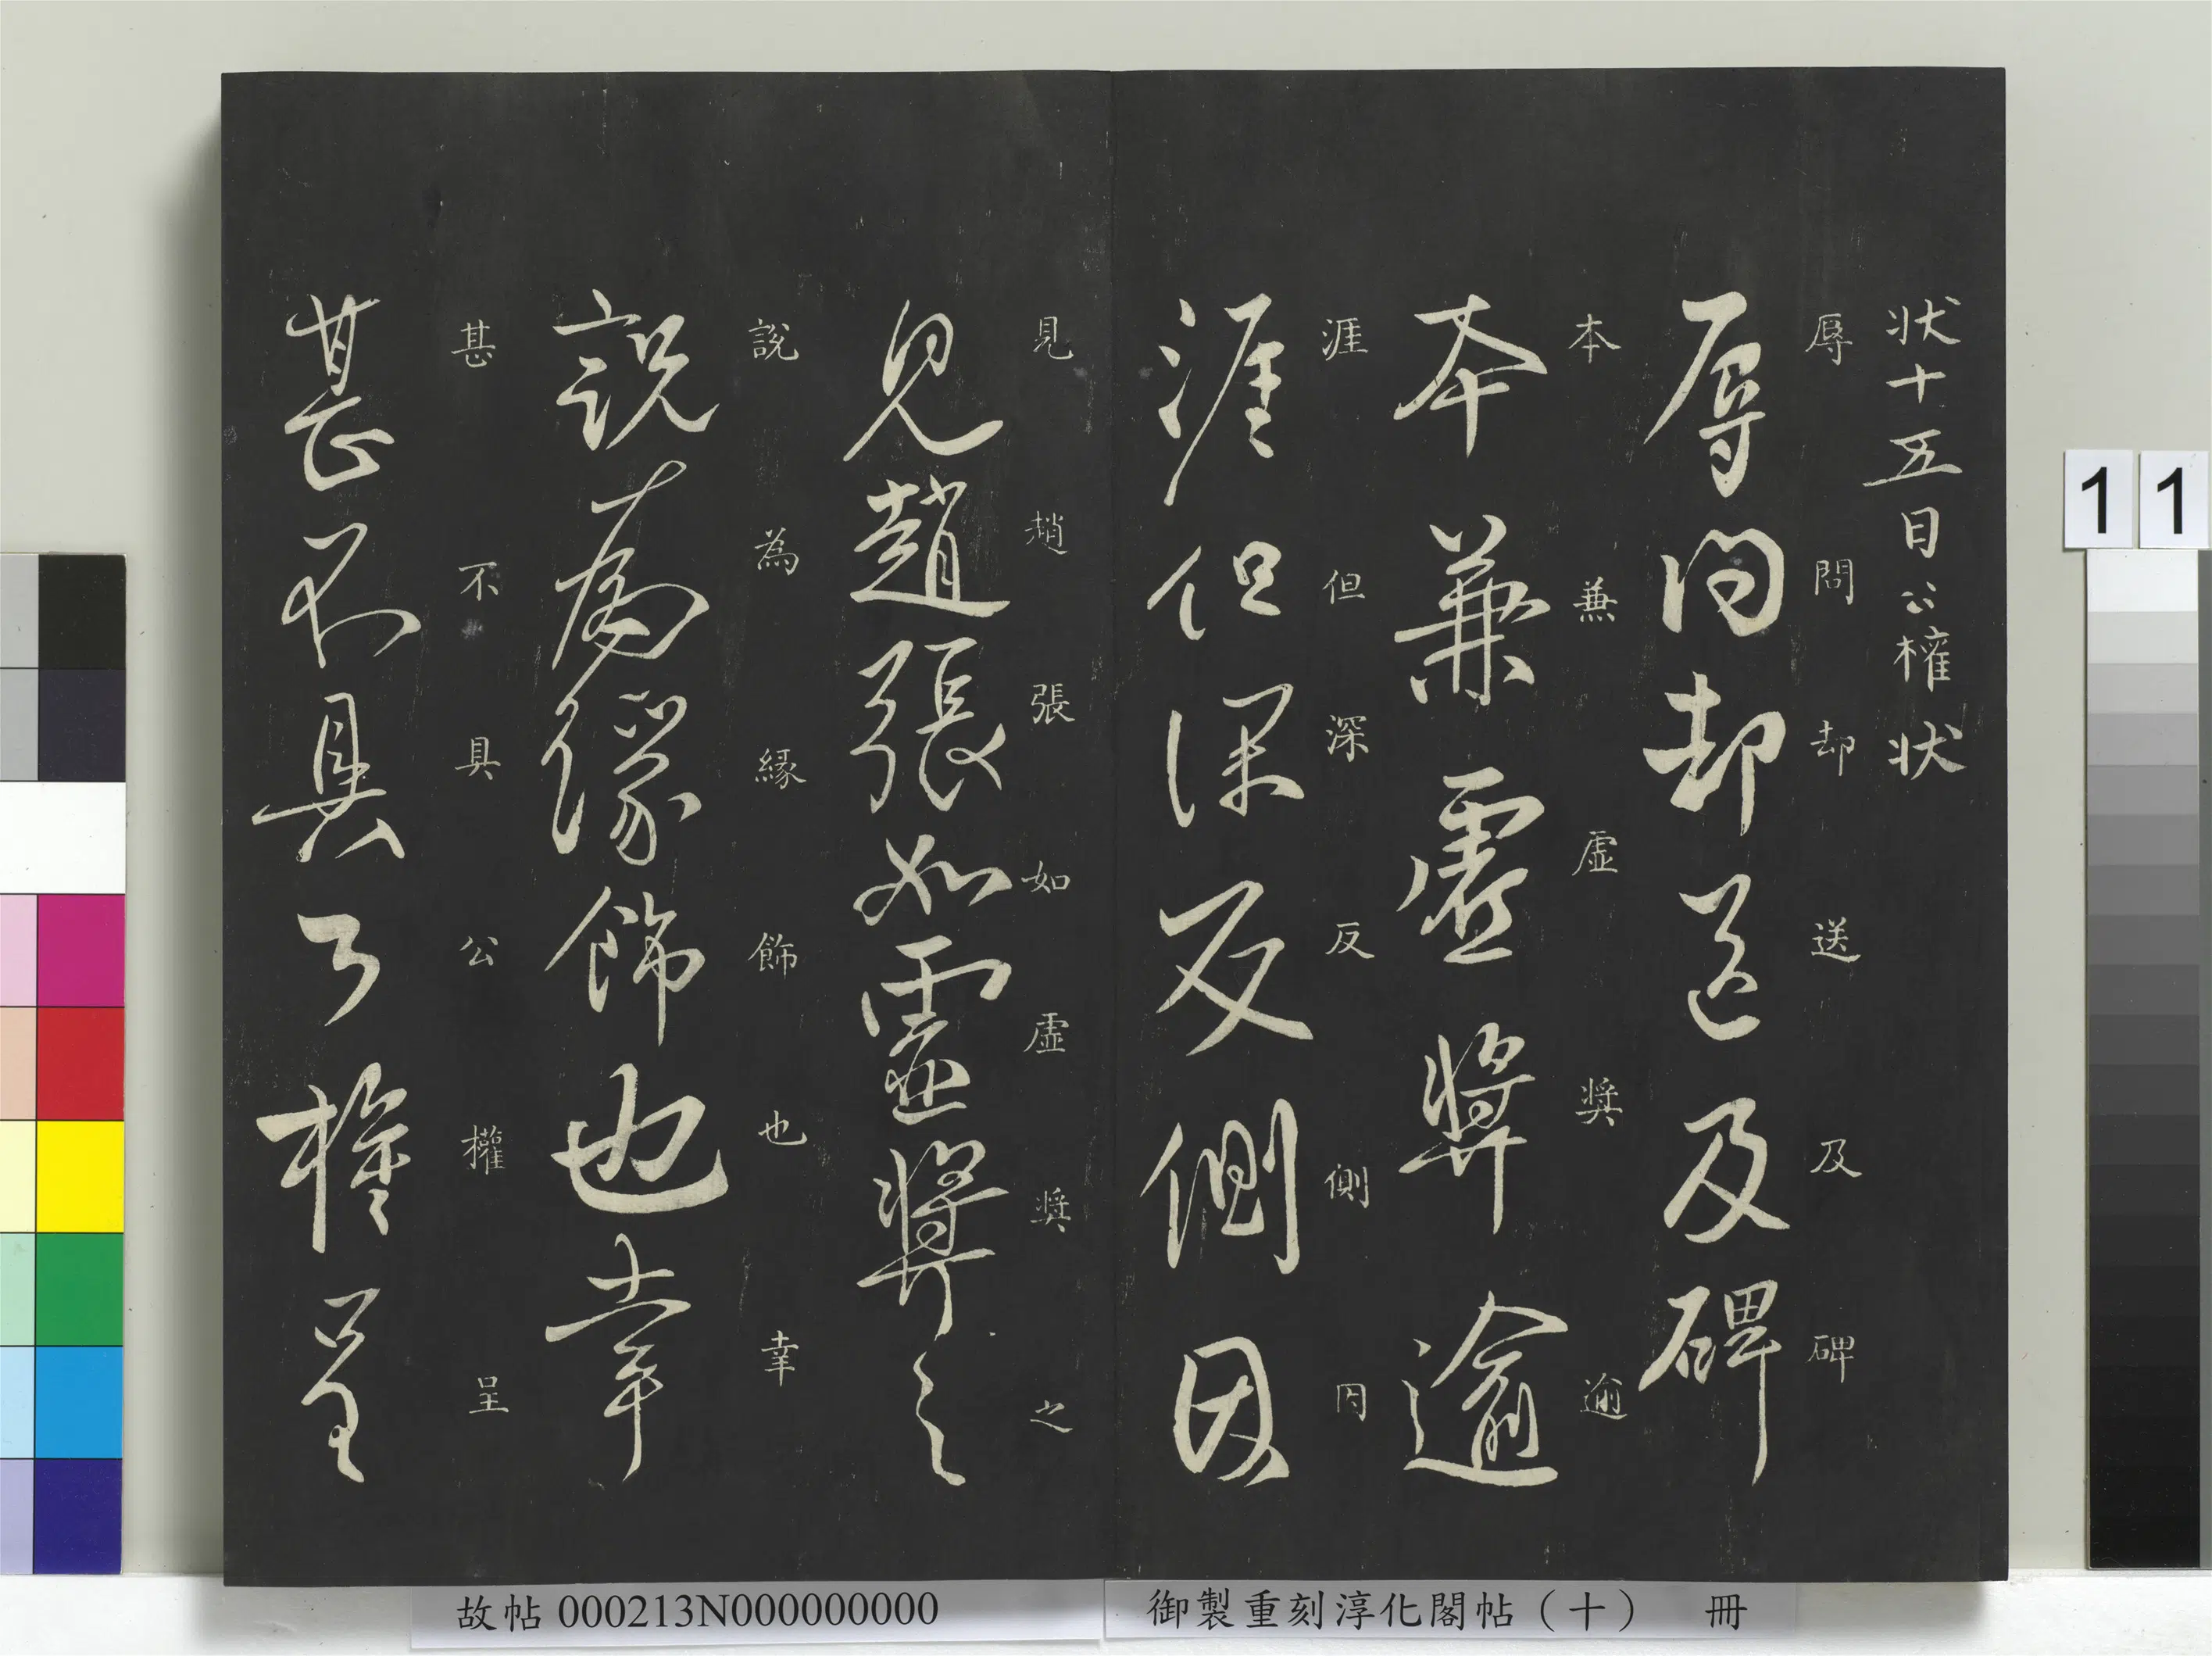 状十五日公權状
辱問却送及碑
辱問却送及碑
本兼虛奬逾
本兼虛奬逾
涯但深反側因
涯但深反側因
見趙張如虛奬之
見趙張如虛奬之
說為緣飾也幸
說為緣飾也幸
甚不具公權呈
甚不具公權呈
11
故帖000213N000000000
御製重刻淳化閣帖（十） 冊